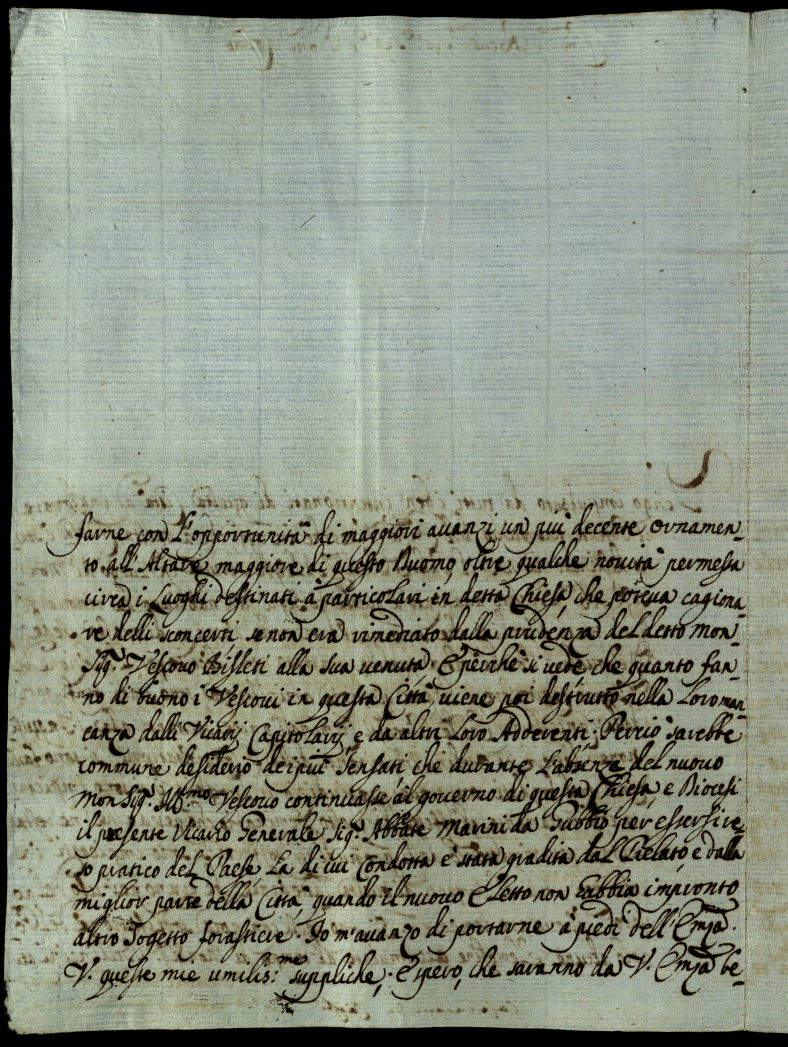 farne con l'opportunità di maggiori avanzi un più decente ornamen=
to all'Altare maggiore di questo Duomo, oltre qualche novità permessa
circa i Luoghi destinati à particolari in detta Chiesa, che poteva cagiona=
re delli sconcerti se non era rimediato dalla prudenza del detto Mon=
Sig.r Vescovo Bisleti alla sua venuta. E perche si vede che quanto fan=
no di buono i Vescovi in questa Città, viene poi destrutto nella loro man=
canza dalli Vicarij Capitolarij, e da altri loro Adderenti. Perciò sarebbe
commune desiderio dei più sensati che durante l'absenza del nuovo
MonSig.r Ill.mo Vescovo continuasse al governo di questa Chiesa, e Diocesi
il presente Vicario Generale Sig.r Abbate Marini da Gubbio per essersi re=
so pratico del Paese la di cui condotta è stata gradita dal Prelato, e dalla
miglior parte della Città, quando il nuovo Eletto non habbia impronto
altro sogetto forastiere. Io m'avanzo di portarne à piedi dell'Emza.
V. queste mie umilis:me suppliche, e spero, che saranno da V. Emza be=